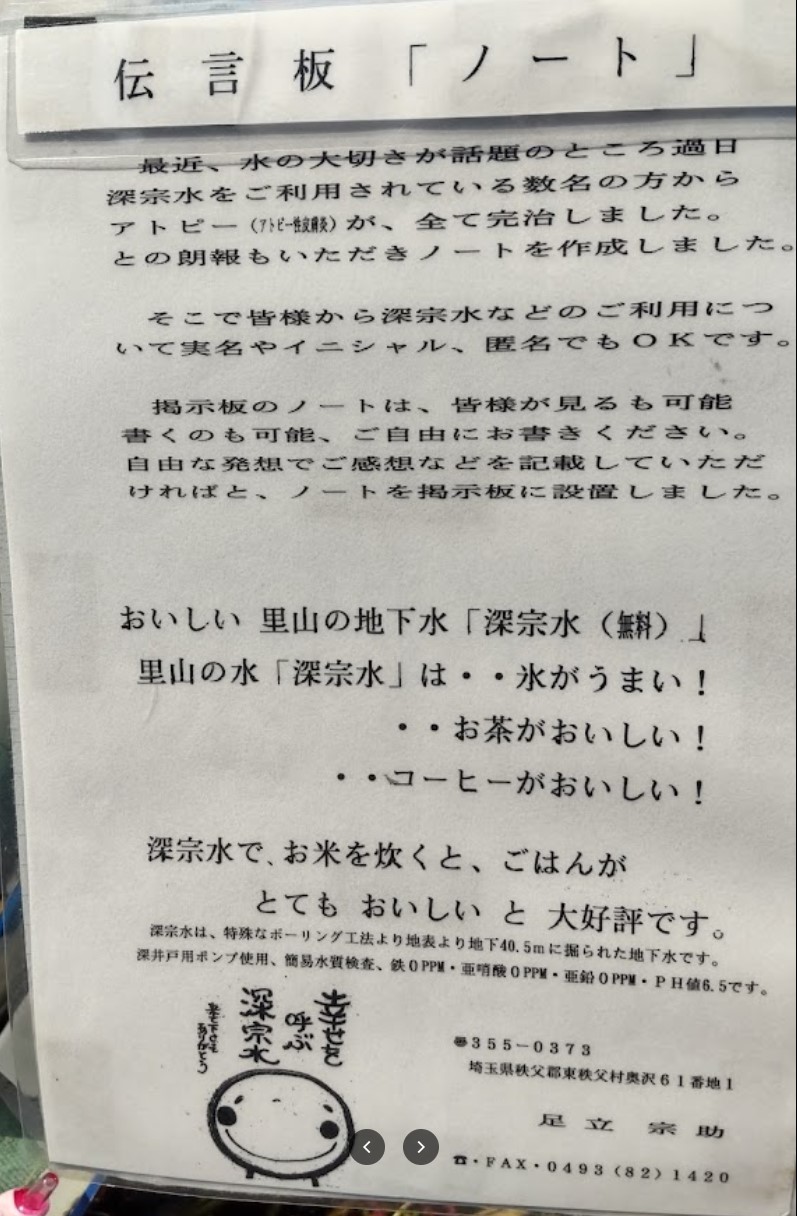 伝言板「ノート」
最近、水の大切さが話題のところ過日
深宗水をご利用されている数名の方から
アトピー（アトピー性皮膚炎）が、全て完治しました。
との朗報もいただきノートを作成しました。
そこで皆様から深宗水などのご利用につ
いて実名やイニシャル、匿名でもＯＫです。
掲示板のノートは、皆様が見るも可能
書くのも可能、ご自由にお書きください。
自由な発想でご感想などを記載していただ
ければと、ノートを掲示板に設置しました。
おいしい 里山の地下水「深宗水（無料）」
里山の水「深宗水」は・・氷がうまい！
・・お茶がおいしい！
・・コーヒーがおいしい！
深宗水で、お米を炊くと、ごはんが
とても おいしい と 大好評です。
深宗水は、特殊なボーリング工法より地表より地下40.5mに掘られた地下水です。
深井戸用ポンプ使用、簡易水質検査、鉄0PPM・亜硝酸0PPM・亜鉛0PPM・ＰＨ値6.5です。
幸せを
呼ぶ
深宗水
ありがとう
〠355－0373
埼玉県秩父郡東秩父村奥沢６１番地１
足立 宗助
☎・FAX・0493（82）1420